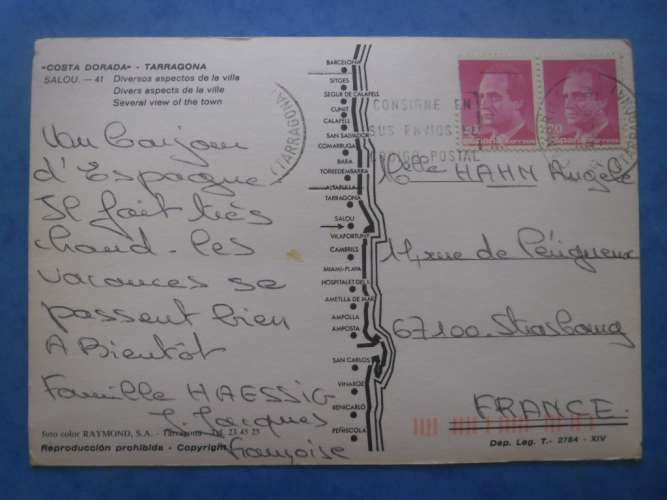 «COSTA DORADA» - TARRAGONA
SALOU. — 41 Diversos aspectos de la villa
Divers aspects de la ville
Several view of the town
Un bonjour
d'Espagne
Il fait très
chaud - les
vacances se
passent bien
A Bientôt
Famille HAESSIG
J. Jacques
Françoise
foto color RAYMOND, S.A. - Tarragona - Tel. 23 45 25
Reproducción prohibida - Copyright
BARCELONA
SITGES
SEGUR DE CALAFELL
CUNIT
CALAFELL
SAN SALVADOR
COMARRUGA
BARA
TORREDEMBARRA
ALTAFULLA
TARRAGONA
SALOU
VILAFORTUNY
CAMBRILS
MIAMI-PLAYA
HOSPITALET DE L.
AMETLLA DE MAR
AMPOLLA
AMPOSTA
SAN CARLOS
VINAROZ
BENICARLO
PEÑISCOLA
(TARRAGONA)
CONSIGNE EN
SUS ENVIOS EL
CODIGO POSTAL
(TARRAGONA)
Melle HAHN Angèle
11, rue de Périgueux
67100 - Strasbourg
FRANCE.
Dep. Leg. T.- 2784 - XIV